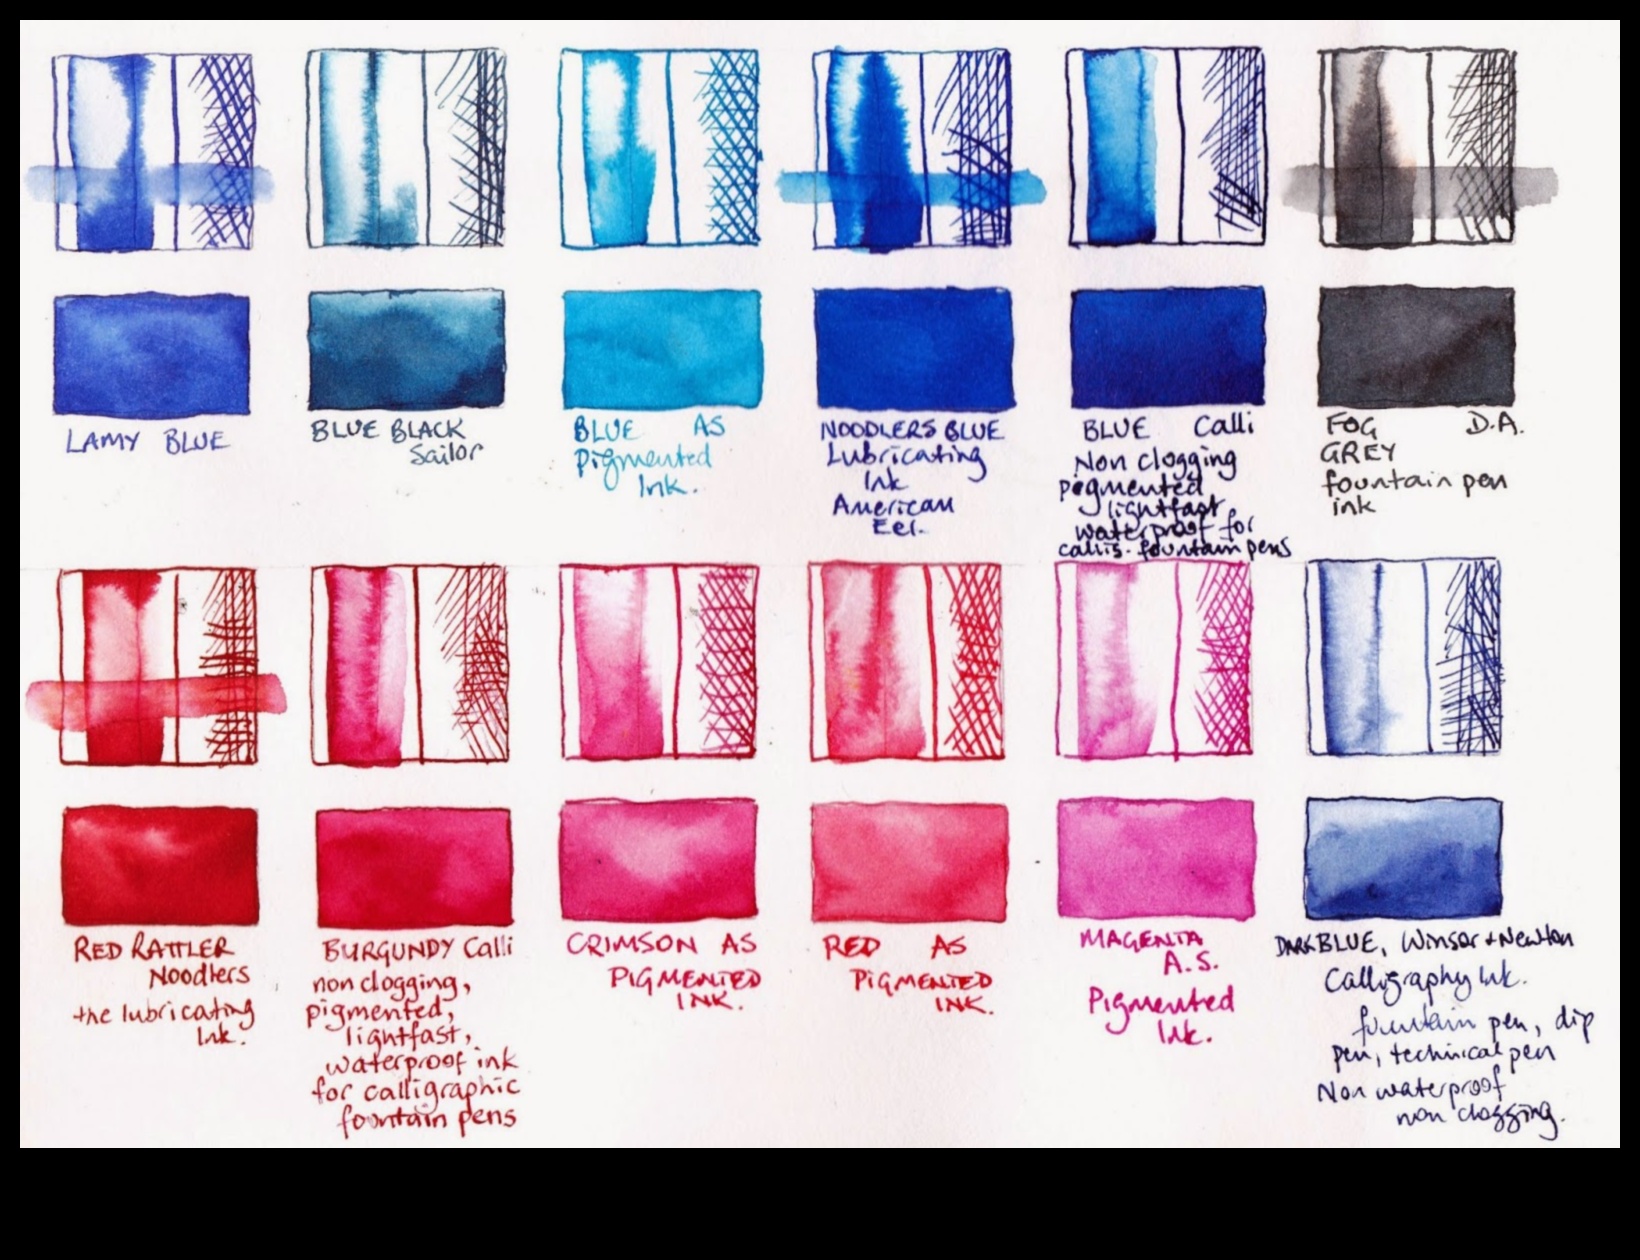 LAMY BLUE
BLUE BLACK
Sailor
BLUE AS
Pigmented
Ink.
NOODLERS BLUE
Lubricating
Ink
American
Eel.
BLUE Calli
Non clogging
pigmented
lightfast
waterproof for
callig. fountain pens
FOG D.A.
GREY
fountain pen
ink
RED RATTLER
Noodlers
the lubricating
Ink.
BURGUNDY Calli
non clogging,
pigmented,
lightfast,
waterproof ink
for calligraphic
fountain pens
CRIMSON AS
PIGMENTED
INK.
RED AS
PIGMENTED
INK.
MAGENTA
A.S.
Pigmented
Ink.
DARK BLUE, Winsor + Newton
Calligraphy Ink.
fountain pen, dip
pen, technical pen
Non waterproof
non clogging.